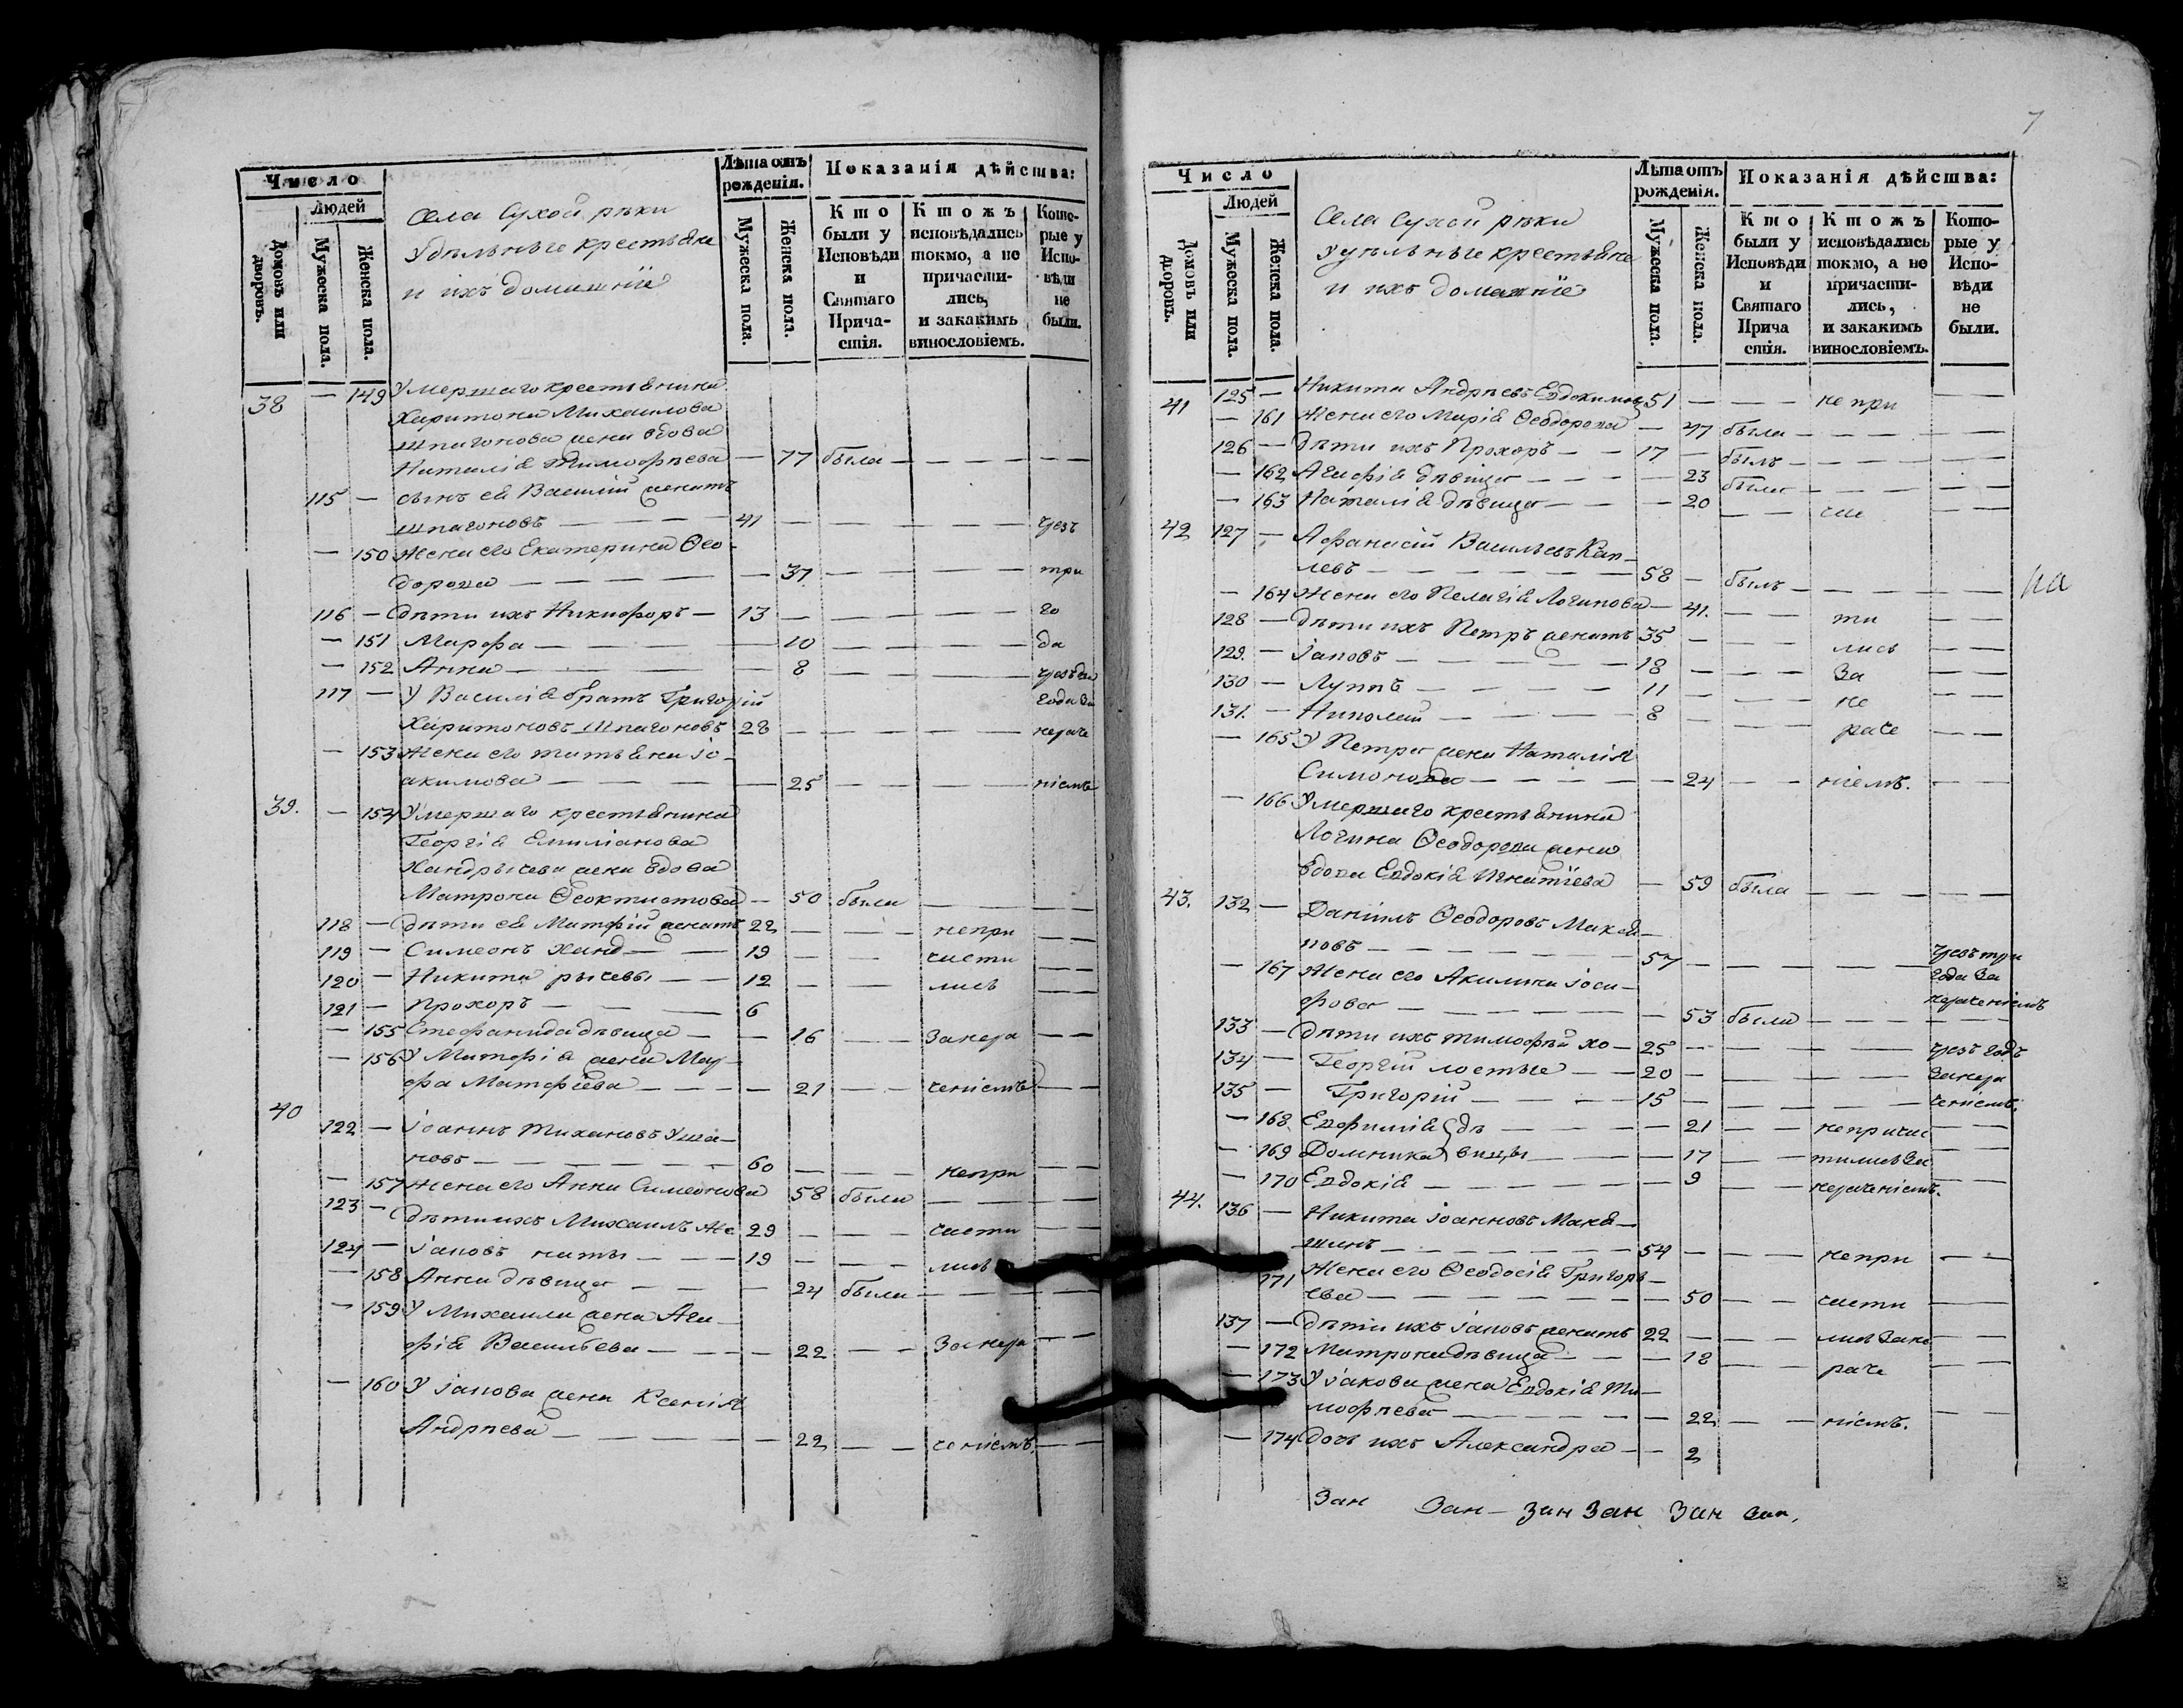 Число
Людей
Домовъ или дворовъ.
Мужеска пола.
Женска пола.
Села Сухой рѣки
Удѣльные крестьяне
и ихъ домашніе
Лѣта отъ рожденія.
Мужеска пола.
Женска пола.
Показанія дѣйства:
Кто были у Исповѣди и Святаго Причастія.
Ктожъ исповѣдались токмо, а не причастились, и закакимъ винословіемъ.
Которые у Исповѣди не были.
38 — 149 Умершаго крестьянина
Харитона Михаилова
Шпагонова жена вдова
Наталія Тимофѣева — 77 была — — — — —
115 — сынъ ея Василій женатъ
Шпагоновъ — — — — 41 — — — — — чрезъ
— 150 Жена его Екатерина Ѳео-
дорова — — — — — 37 — — — — — три
116 — Дѣти ихъ Никифоръ — 13 — — — — — го
— 151 Марфа — — — — — 10 — — — — — да
— 152 Анна — — — — — 8 — — — — —
117 — У Василія братъ Григорій года за
Харитоновъ Шпагоновъ 28 — — — — — нераче
— 153 Жена его Татьяна Іо-
акимова — — — — 25 — — — — — ніемъ
39. — 154 Умершаго крестьянина
Георгія Емиліанова
Хандрычева жена вдова
Матрона Ѳеоктистова — 50 была — — —
118 — Дѣти ея Матфій женатъ 22 — — — непри — —
119 — Симеонъ Ханд — — 19 — — части — —
120 — Никита рычевы — — 12 — — лись — —
121 — Прохоръ — — — 6
— 155 Стефанида дѣвица — — 16 — — Занера — —
— 156 У Матфія жена Мар-
фа Матфіева — — — — 21 — — ченіемъ — —
40 122 — Іоаннъ Тихановъ Уша-
ковъ — — — — — — 60 — — — непри — —
— 157 Жена его Анна Симеонова 58 была — — — —
123 — Дѣти ихъ Михаилъ же 29 — — — части — —
124 — Іаковъ наты — — — 19 — — — лись
— 158 Анна дѣвица — — — 24 была — — — —
— 159 У Михаила жена Ага-
фія Васильева — — — — 22 — — Занера — —
— 160 У Іакова жена Ксенія
Андрѣева — — — — — 22 — — ченіемъ. — —
7
Число
Людей
Домовъ или дворовъ.
Мужеска пола.
Женска пола.
Села Сухой рѣки
Удѣльные крестьяне
и ихъ домашніе
Лѣта отъ рожденія.
Мужеска пола.
Женска пола.
Показанія дѣйства:
Кто были у Исповѣди и Святаго Причастія.
Ктожъ исповѣдались токмо, а не причастились, и закакимъ винословіемъ.
Которые у Исповѣди не были.
41 125 — Никита Андрѣевъ Евдокимовъ 51 — — — не при — —
— 161 Жена его Марія Ѳеодорова — 47 была — — — — —
126 — Дѣти ихъ Прохоръ — — 17 — былъ — — — — —
— 162 Агафія дѣвица — — — — 23 была — — — — —
— 163 Наталія дѣвица — — — 20 — — — —
42 127 — Афанасій Васильевъ Кап-
левъ — — — — — — 58 — былъ — — — — — на
— 164 Жена его Пелагія Логинова — 41. — — ти — —
128 — Дѣти ихъ Петръ женатъ 35 — — — лись — —
129. — Іаковъ — — — — — 18 — — — За — —
130 — Луппъ — — — — 11 — — — не — —
131. — Николай — — — — 8 — — — раче — —
— 165 У Петра жена Наталія
Симонова — — — — — 24 — — ніемъ. — —
— 166 Умершаго крестьянина
Логина Ѳеодорова жена
вдова Евдокія Игнатіева — 59 была — — — —
43. 132 — Даніилъ Ѳеодоровъ Макся-
ковъ — — — — — — 57 — — — — — чрезъ три
года за
нераченіемъ
— 167 Жена его Акилина Іоси-
фова — — — — — — 53 была — — — — —
133 — Дѣти ихъ Тимофѣй хо- 25 — — — — чрезъ годъ
134 — Георгій лостые — — 20 — — — — занера
135 — Григорій — — — — 15 — — — — ченіемъ.
— 168 Евфимія дѣ — — — — 21 — — непричас — —
— 169 Домника вицы — — — — 17 — — тилисьЗа — —
— 170 Евдокія — — — — — 9 — — нераченіемъ. — —
44. 136 — Никита Іоанновъ Макя-
шинъ — — — — — — 54 — — — непри — —
171 Жена его Ѳеодосія Григорь-
ева — — — — — — — 50 — — части — —
137 — Дѣти ихъ Іаковъ женатъ 22 — — — лись Зане — —
— 172 Матрона дѣвица — — — 18 — — раче — —
— 173 У Іакова жена Евдокія Ти-
мофѣева — — — — — — 22 — — ніемъ. — —
— 174 Дочь ихъ Александра — — 2
Зан Зан — Зан Зан Зан Зан.